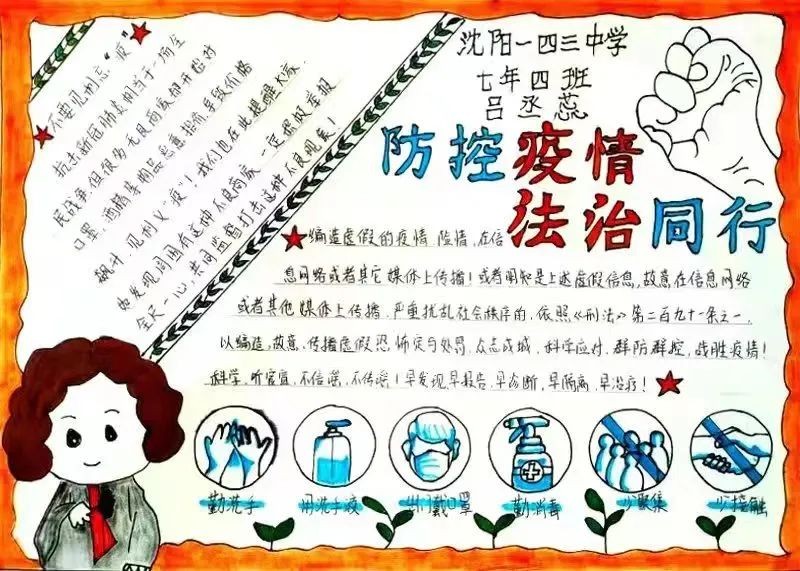 沈阳一四三中学
七年四班
吕丞蕊
防控疫情
法治同行
不要见利忘"疫"
抗击新冠肺炎相当于一场全
民战争,但很为无良商家的开始对
口罩、酒精等物品恶意抬价,导致价格
飙升,见利义"疫"!我们也在此提醒大家,
如发现周围有这种不良商家,一定摄假举报
全天一心,共同监督打击这种不良现象!
编造虚假的疫情、险情,在信
息网络或者其它媒体上传播!或者明知是上述虚假信息,故意在信息网络
或者其他媒体上传播,严重扰乱社会秩序的,依照《刑法》第二百九十一条之一,
以编造,故意,传播虚假恐怖定与处罚,众志成城,科学应对,群防群控,战胜疫情!
科学,听官宣,不信谣,不传谣!早发现早报告,早诊断,早隔离,早治疗!
勤洗手
用洗手液
出门戴口罩
勤消毒
少聚集
少接触